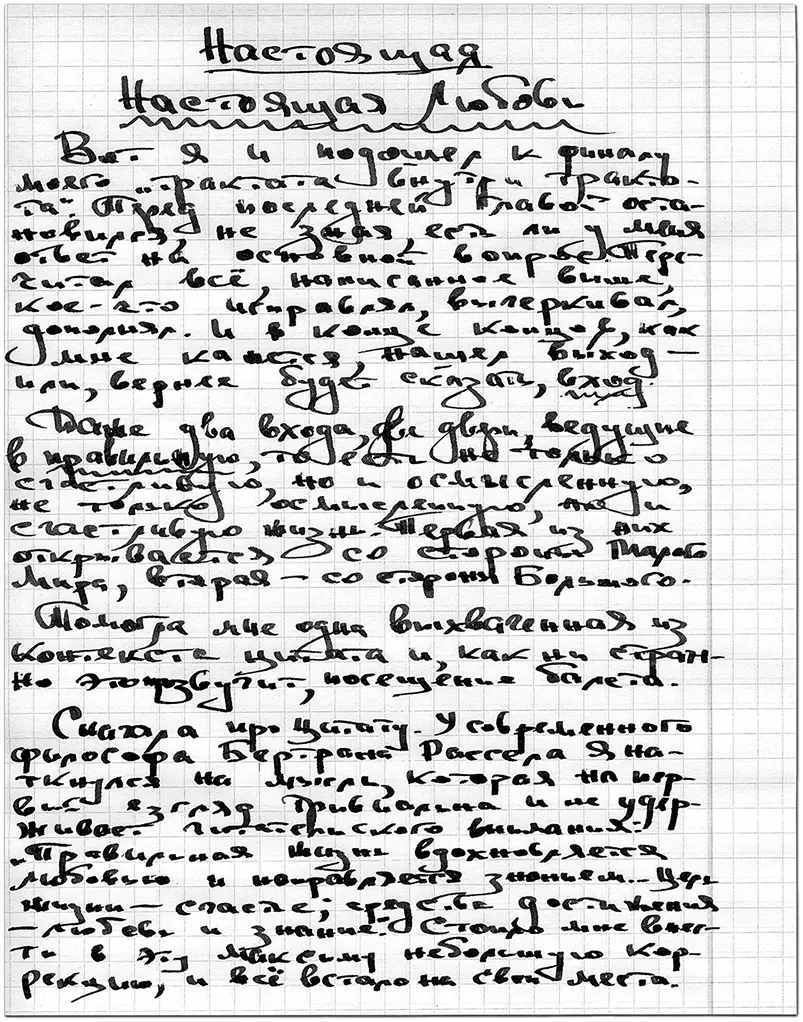 Настоящая
Настоящая Любовь
Вот я и подошел к финалу
моего „трактата внутри тракта-
та“. Перед последней главой оста-
новился, не зная, есть ли у меня
ответ на основной вопрос. Пере-
читал всё, написанное выше,
кое-что исправлял, вычеркивал,
дополнял. И в конце концов, как
мне кажется, нашел выход —
или, вернее будет сказать, вход.
Даже два входа, две двери, ведущие
в правильную, то есть не только
счастливую, но и осмысленную,
не только осмысленную, но и
счастливую жизнь. Первая из них
открывается со стороны Малого
Мира, вторая — со стороны Большого.
Помогла мне одна выхваченная из
контекста цитата и, как ни стран-
но это звучит, посещение балета.
Сначала про цитату. У современного
философа Бертрана Рассела я на-
ткнулся на мысль, которая на пер-
вый взгляд тривиальна и не удер-
живает читательского внимания:
„Правильная жизнь вдохновляется
любовью и направляется знанием... Цель
жизни — счастье; средства достижения
— любовь и знание“. Стоило мне внес-
ти в эту максиму небольшую кор-
рекцию, и всё встало на свои места.